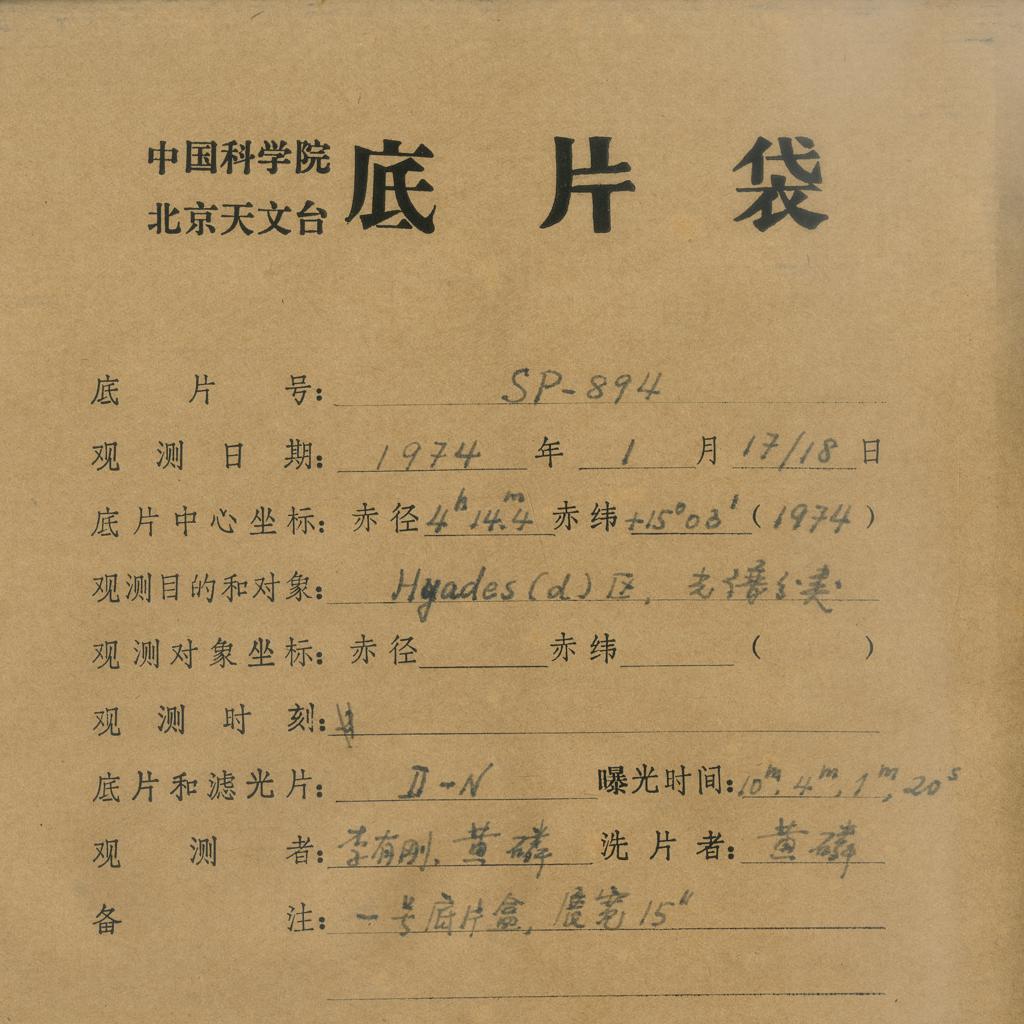 中国科学院
北京天文台
底片袋
底片号: SP-894
观测日期: 1974 年 1 月 17/18 日
底片中心坐标: 赤径 4ʰ14ᵐ.4 赤纬 +15°03′ (1974)
观测目的和对象: Hyades (d) 区, 光谱分类.
观测对象坐标: 赤径 赤纬 ( )
观测时刻:
底片和滤光片: II-N 曝光时间: 10ᵐ, 4ᵐ, 1ᵐ, 20ˢ
观测者: 李有刚, 黄磷 洗片者: 黄磷
备注: 一号底片盒, 展宽 15″